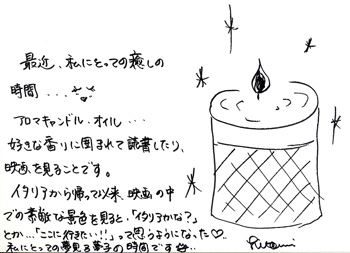 最近、私にとっての癒しの
時間...
アロマキャンドル・オイル...
好きな香りに囲まれて読書したり、
映画を見ることです。
イタリアから帰って以来、映画の中
での素敵な景色を見ると、「イタリアかな?」
とか...「ここに行きたい!!」って思うようになった♡..
私にとっての夢見る菓子の時間です